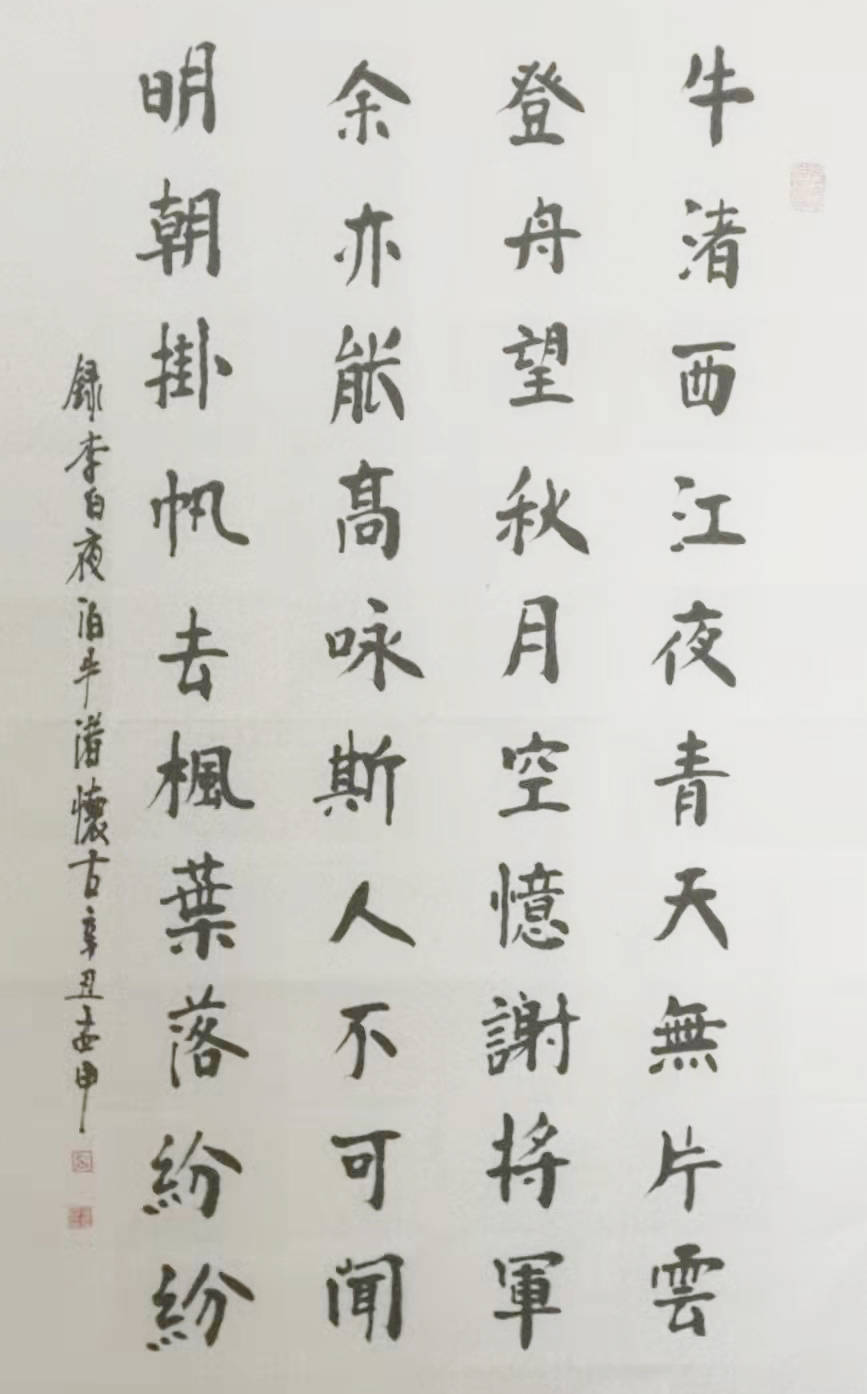 牛渚西江夜青天無片雲
登舟望秋月空憶謝将軍
余亦能高咏斯人不可聞
明朝掛帆去楓葉落紛紛
録李白夜泊牛渚懷古辛丑孟申